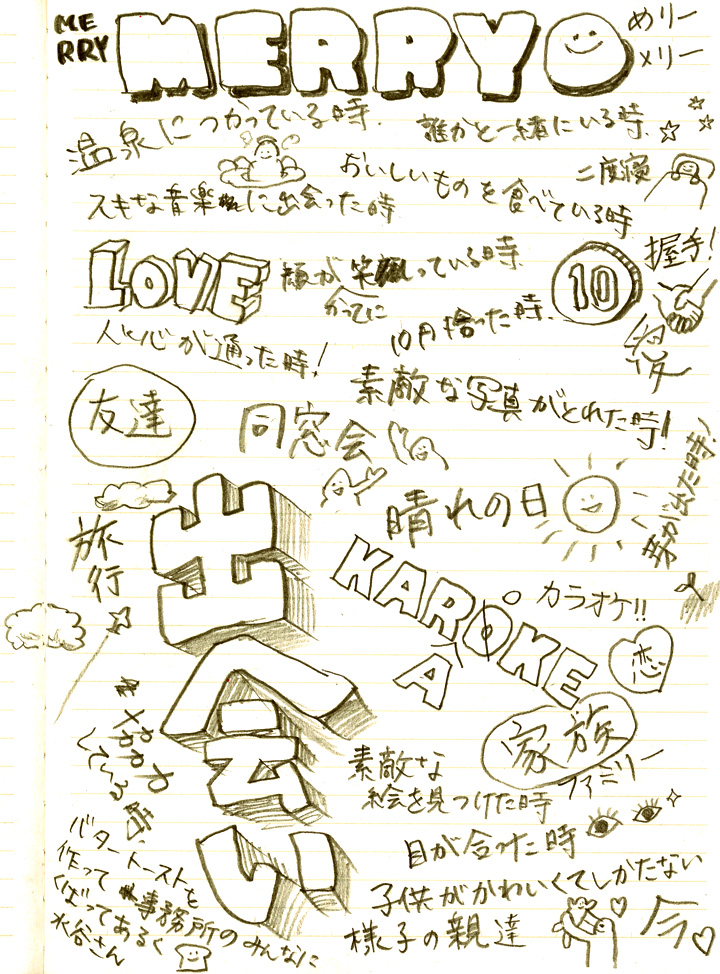 ME
RRY
MERRY
めリー
メリー
温泉につかっている時.
誰かと一緒にいる時.
おいしいものを食べている時
二度寝
スキな音楽に出会った時
LOVE
顔が笑っている時.
かってに
10
握手!
10円捨った時.
人と心が通った時!
愛
素敵な写真がとれた時!
友達
同窓会
晴れの日
芽が出た時!
旅行
出会い
KARAOKE
カラオケ!!
恋
家族
ファミリー
素敵な
絵を見つけた時
目が合った時
バタートーストを
作って事務所のみんなに
くばってあるく
水谷さん
子供がかわいくてしかたない
様子の親達
今